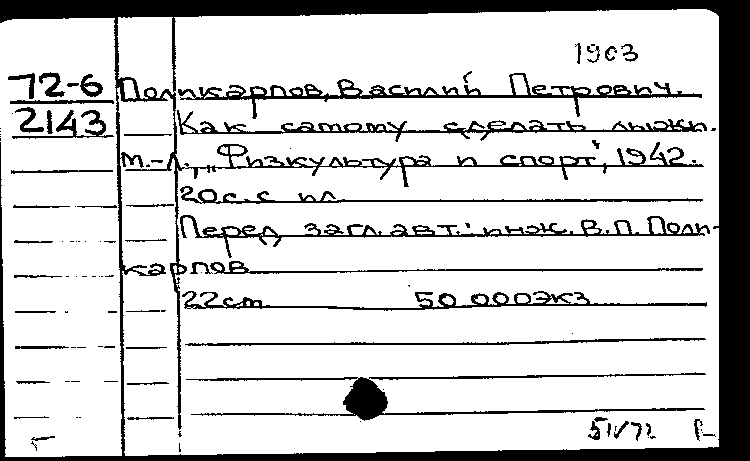 1903
72-6 Поликарпов, Василий Петрович.
2143 Как самому сделать лыжи.
М.-Л., „Физкультура и спорт", 1942.
20 с. с ил.
Перед загл. авт.: инж. В.П. Поли-
карпов
22 см. 50.000 экз